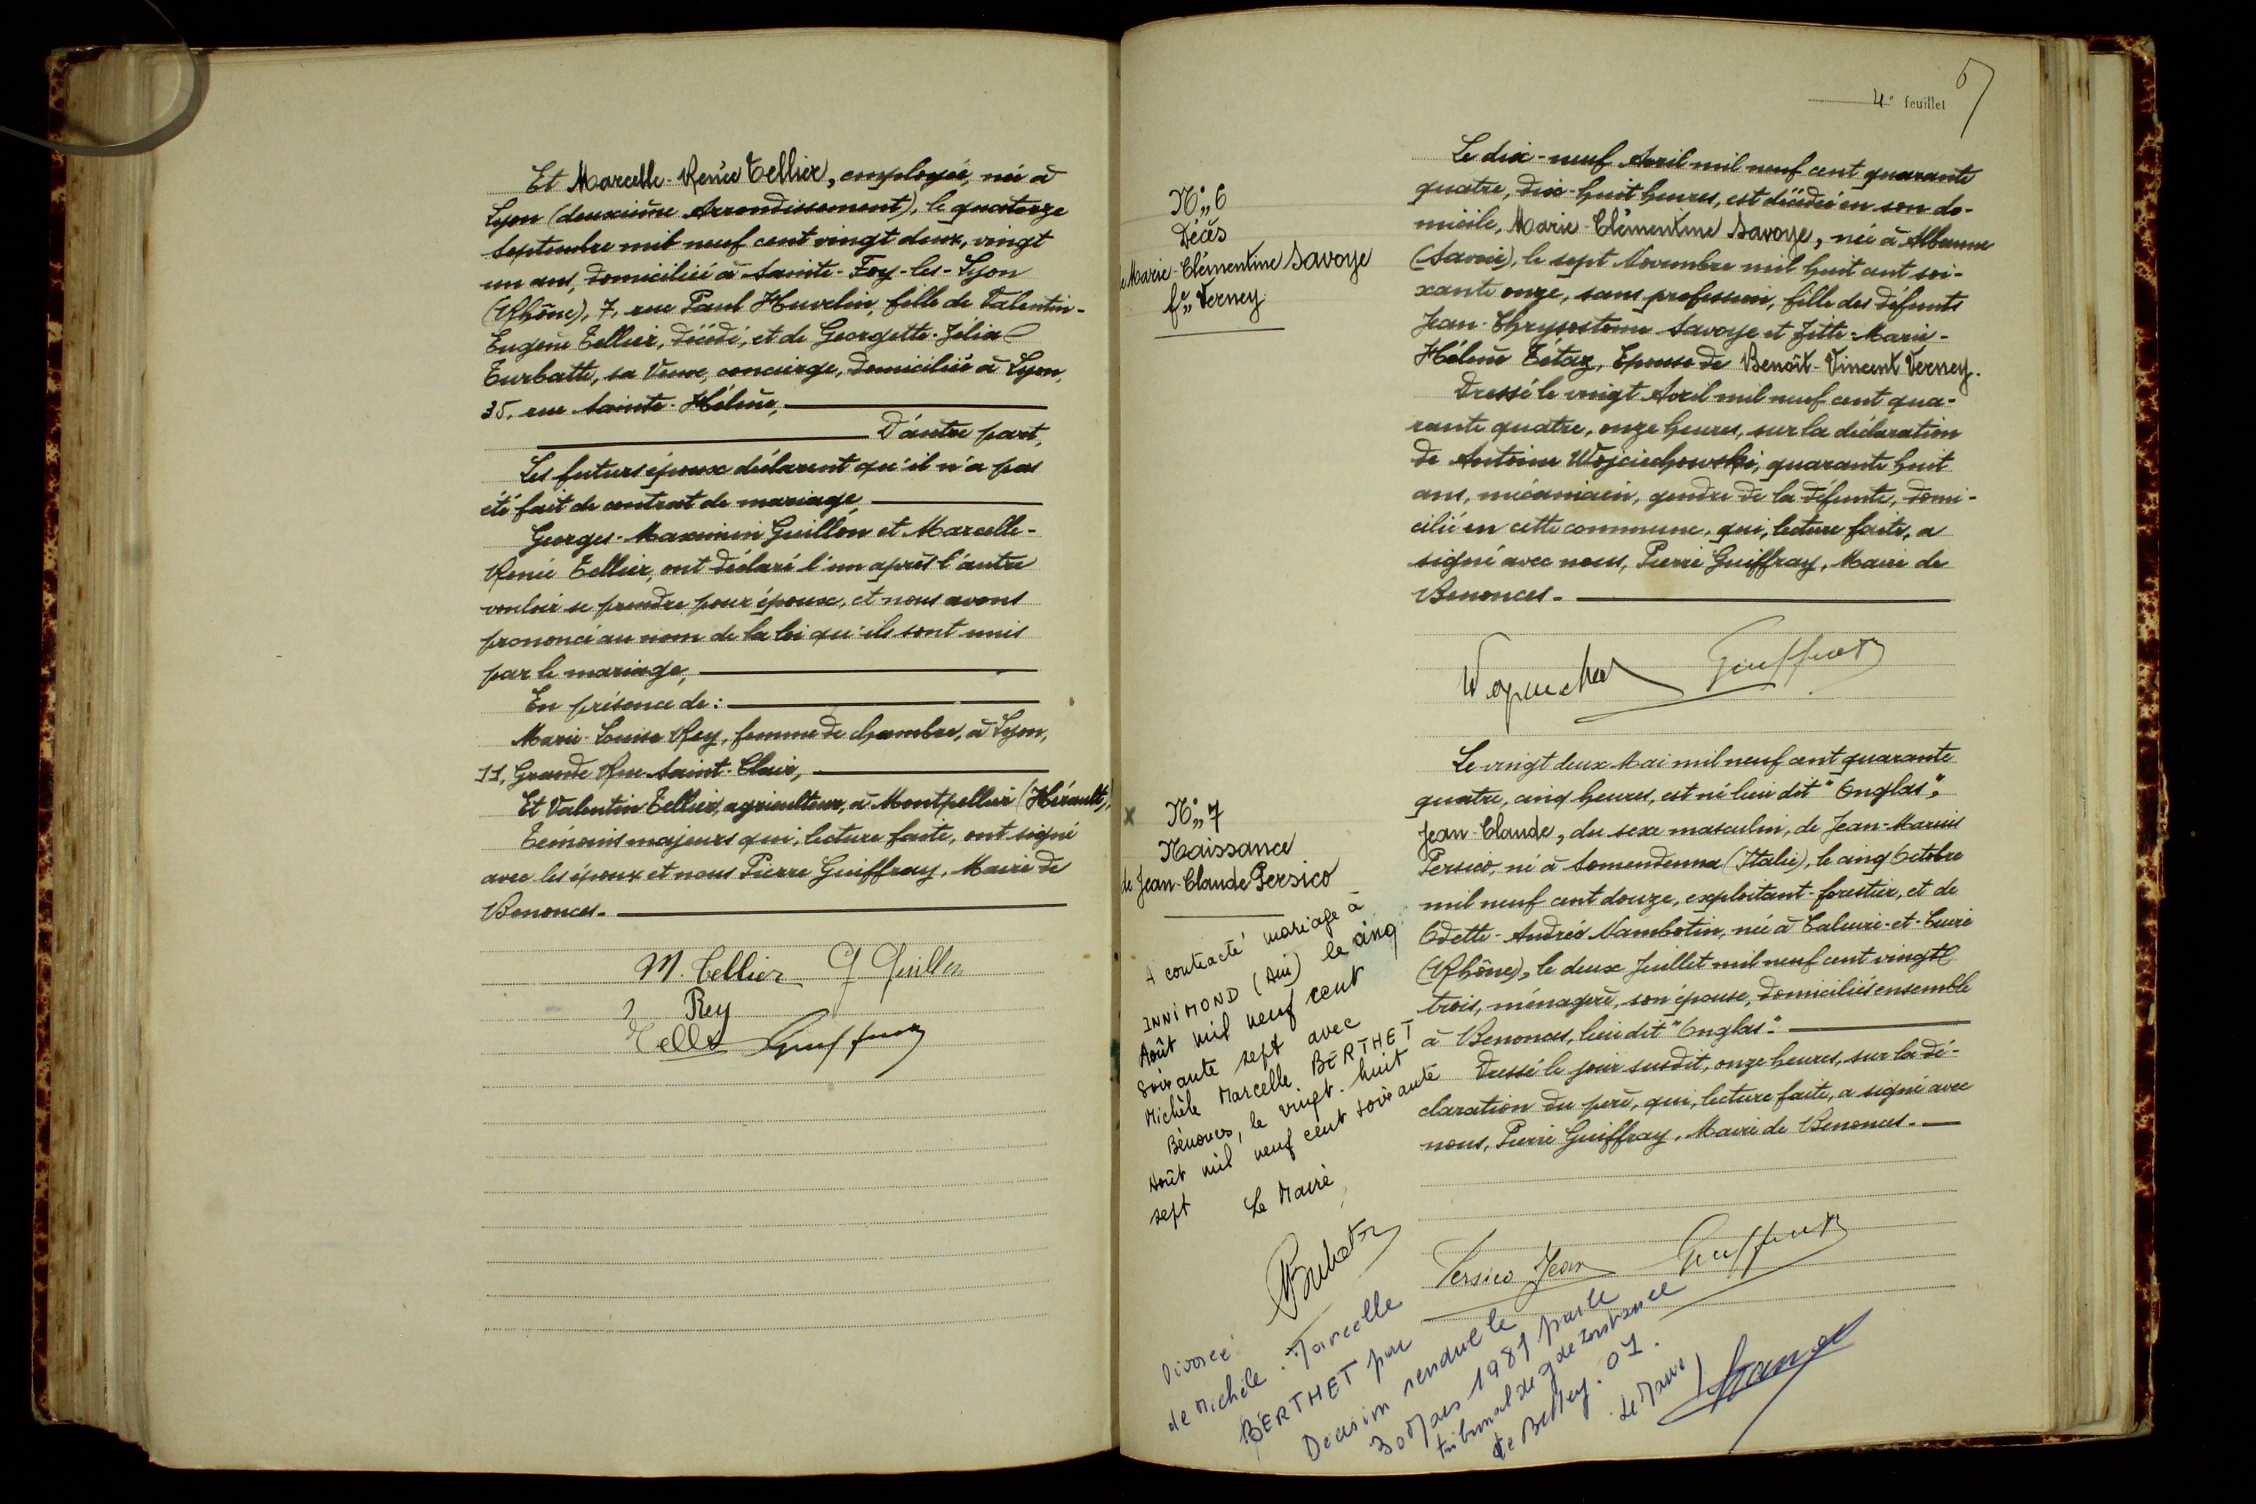 Et Marcelle-Renée Tellier, employée, née à
Lyon (deuxième Arrondissement), le quatorze
Septembre mil neuf cent vingt deux, vingt
un ans, domiciliée à Sainte-Foy-les-Lyon
(Rhône), 7, rue Paul Huvelin, fille de Valentin-
Eugène Tellier, décédé, et de Georgette-Jélia
Turbatte, sa Veuve, concierge, domiciliée à Lyon,
35, rue Sainte-Hélène,
D'autre part,
Les futurs époux déclarent qu'il n'a pas
été fait de contrat de mariage,
Georges-Maximin Guillon et Marcelle-
Renée Tellier, ont déclaré l'un après l'autre
vouloir se prendre pour époux, et nous avons
prononcé au nom de la loi qu'ils sont unis
par le mariage,
En présence de:
Marie-Louise Rey, femme de chambre, à Lyon,
11, Grande Rue Saint-Clair,
Et Valentin Tellier, agriculteur, à Montpellier (Hérault),
Témoins majeurs qui, lecture faite, ont signé
avec les époux et nous Pierre Guiffray, Maire de
Benonces.
M. Tellier G Guillon
Rey
4e feuillet
N° 6
Décès
de Marie-Clémentine Savoye
fe Verney
Le dix-neuf Avril mil neuf cent quarante
quatre, dix-huit heures, est décédée en son do-
micile, Marie-Clémentine Savoye, née à Albanne
(Savoie), le sept Novembre mil huit cent soi-
xante onze, sans profession, fille des défunts
Jean-Chrysostome Savoye et Zitte-Marie-
Hélène Tétaz, Epouse de Benoît-Vincent Verney.
Dressé le vingt Avril mil neuf cent qua-
rante quatre, onze heures, sur la déclaration
de Antoine Wojciechowski, quarante huit
ans, mécanicien, gendre de la défunte, domi-
cilié en cette commune, qui, lecture faite, a
signé avec nous, Pierre Guiffray, Maire de
Benonces.
Guiffray
x N° 7
Naissance
de Jean-Claude Persico
Le vingt deux Mai mil neuf cent quarante
quatre, cinq heures, est né lieu dit "Onglas",
Jean-Claude, du sexe masculin, de Jean-Marius
Persico, né à Somendenna (Italie), le cinq Octobre
mil neuf cent douze, exploitant-forestier, et de
Odette-Andréé Nambotin, née à Caluire-et-Cuire
(Rhône), le deux Juillet mil neuf cent vingt
trois, ménagère, son épouse, domiciliés ensemble
à Benonces, lieu dit "Onglas".
Dressé le jour susdit, onze heures, sur la dé-
claration du père, qui, lecture faite, a signé avec
nous, Pierre Guiffray, Maire de Benonces.
Persico Jean Guiffray
A contracté mariage à
INNIMOND (Ain) le cinq
Août mil neuf cent
soixante sept avec
Michèle Marcelle BERTHET
Bénonces, le vingt-huit
Août mil neuf cent soixante
sept Le Maire
Divorcé
de Michèle-Marcelle
BERTHET par
Décision rendue le
30 Mars 1981 par le
tribunal de gde Instance
de Belley. 01.
Le Maire